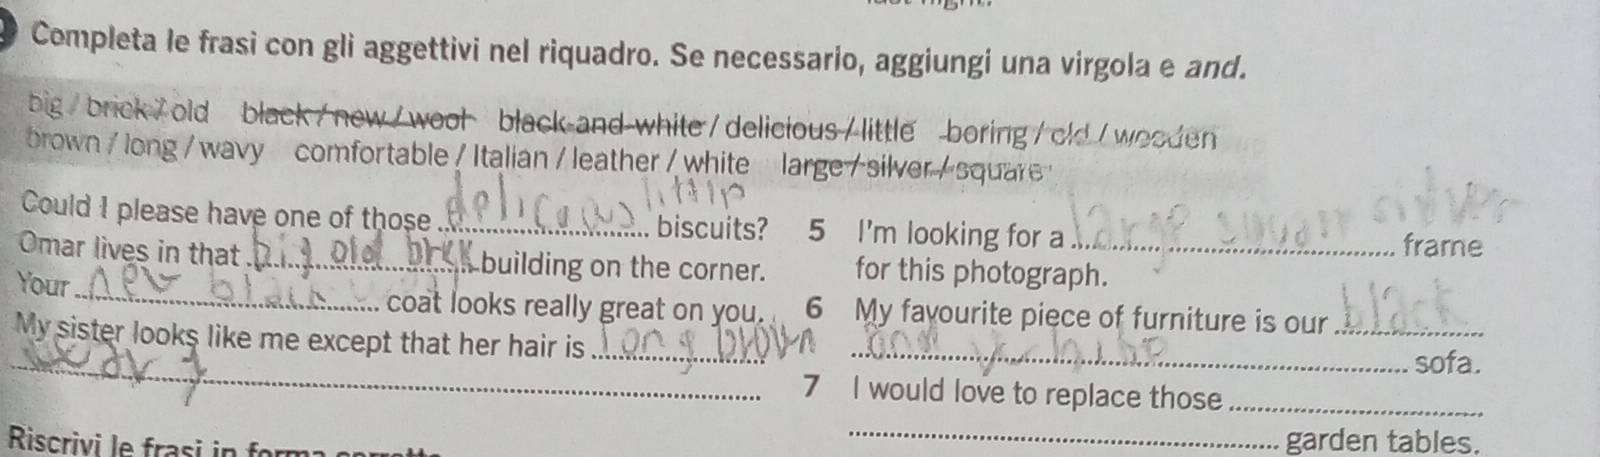 Completa le frasi con gli aggettivi nel riquadro. Se necessario, aggiungi una virgola e and.
big / brick / old black / new / wool black-and-white / delicious / little boring / old / wooden
brown / long / wavy comfortable / Italian / leather / white large / silver / square
Could I please have one of those delicous little biscuits?
Omar lives in that big old brick building on the corner.
Your new black wool coat looks really great on you.
My sister looks like me except that her hair is long brown
wavy
Riscrivi le frasi in forma
5 I'm looking for a large square silver frame
for this photograph.
6 My favourite piece of furniture is our black
and white sofa.
7 I would love to replace those
garden tables.